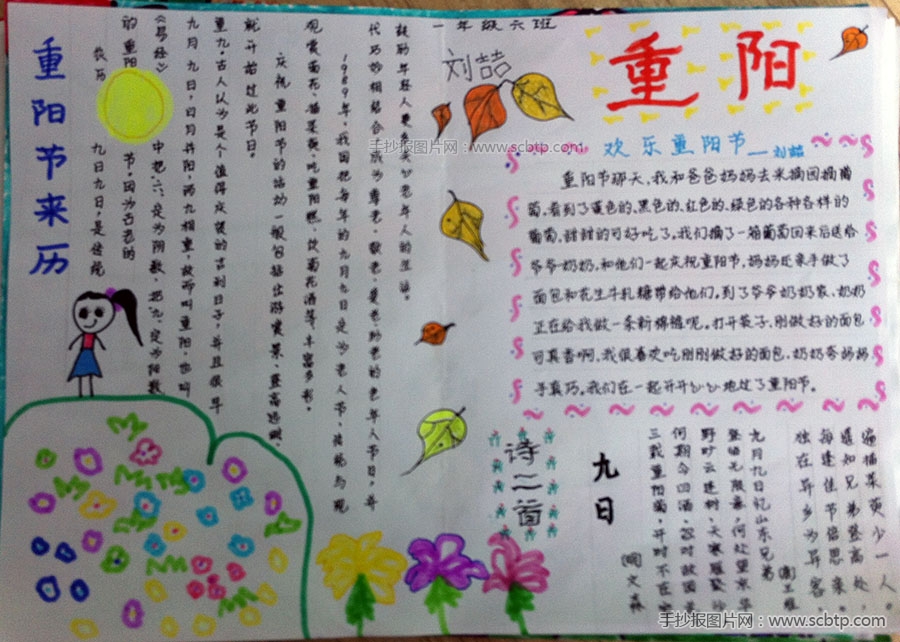 重阳节来历
农历 九月九日,是传统
的重阳 节。因为古老的
《易经》 中把“六”定为阴数,把“九”定为阳数
九月九日,日月并阳,两九相重,故而叫重阳,也叫
重九。古人认为是个值得庆贺的吉利日子,并且很早
就开始过此节日。
庆祝重阳节的活动一般包括出游赏景、登高远眺、
观赏菊花、插茱萸、吃重阳糕、饮菊花酒等,丰富多彩。
1989年,我国把每年的九月九日定为老人节,传统与现
代巧妙相结合,成为尊老、敬老、爱老、助老的老年人节日,并
鼓励年轻人更多关心老年人的生活。
一年级六班
刘喆
重阳
手抄报图片网:www.scbtp.com
欢乐重阳节—刘喆
重阳节那天,我和爸爸妈妈去果摘园摘葡
萄,看到了蓝色的、黑色的、红色的、绿色的各种各样的
葡萄,甜甜的可好吃了。我们摘了一箱葡萄回来后送给
爷爷奶奶,和他们一起庆祝重阳节,妈妈还亲手做了
面包和花生牛轧糖带给他们。到了爷爷奶奶家,奶奶
正在给我做一条新棉裤呢。打开袋子,刚做好的面包
可真香啊,我很喜欢吃刚刚做好的面包,奶奶夸妈妈
手真巧。我们在一起开开心心地过了重阳节。
诗二首
九日
[明]文森
三载重阳菊,开时不在家
何期今日酒,忽对故园花
野旷云连树,天寒雁聚沙
登临无限意,何处望京华
九月九日忆山东兄弟
[唐]王维
独在异乡为异客,
每逢佳节倍思亲。
遥知兄弟登高处,
遍插茱萸少一人。
手抄报图片网:www.scbtp.com